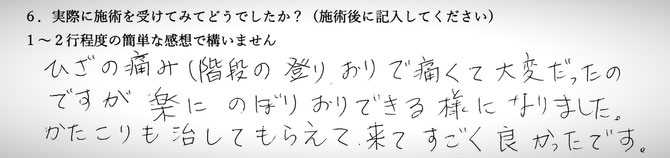 6．実際に施術を受けてみてどうでしたか？（施術後に記入してください）
1～2行程度の簡単な感想で構いません
ひざの痛み（階段の登りおりで痛くて大変だったの
ですが楽にのぼりおりできる様になりました。
かたこりも治してもらえて、来てすごく良かったです。